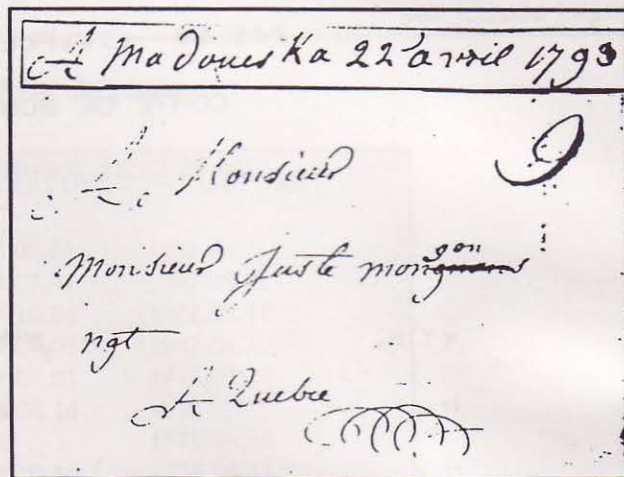 A Madoueska 22 avril 1793
A Monsieur 9
Monsieur Juste mongon
ngt
A Quebec